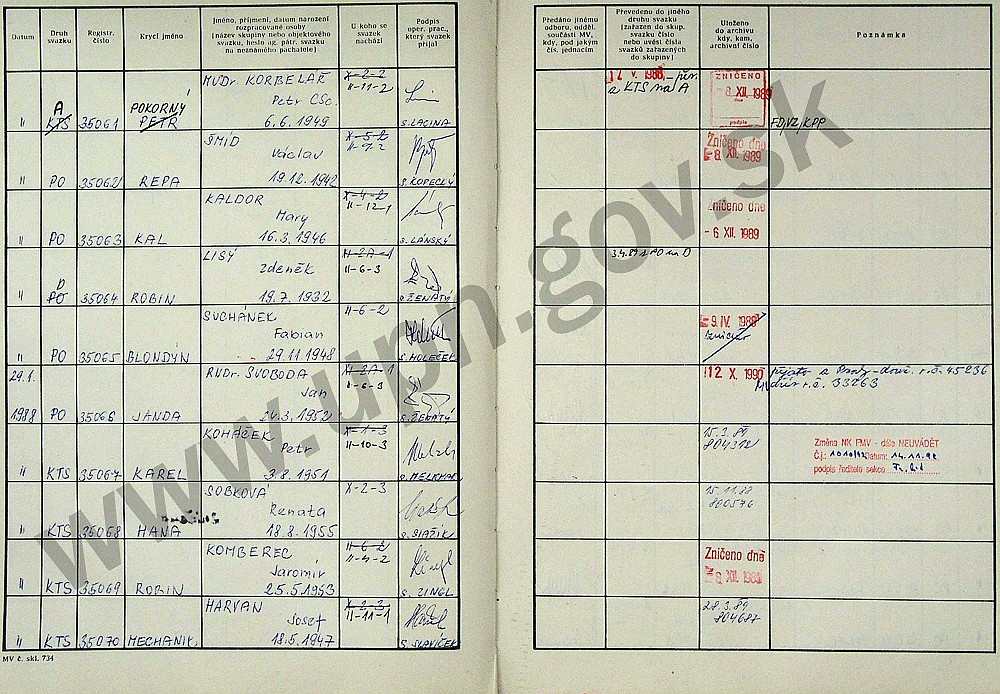 Datum
Druh svazku
Registr. číslo
Krycí jméno
Jméno, příjmení, datum narození
rozpracované osoby
(název skupiny nebo objektového
svazku, heslo ag. pátr. svazku
na neznámého pachatele)
U koho se
svazek
nachází
Podpis
oper. prac.,
který svazek
přijal
Předáno jinému
odboru, odděl.
součásti MV,
kdy, pod jakým
čís. jednacím
Převedeno do jiného
druhu svazku
(zařazen do skup.
svazku číslo
nebo uvésti čísla
svazků zařazených
do skupiny)
Uloženo
do archivu
kdy, kam,
archivní číslo
Poznámka
MVDr KORBELAŘ X-2-2
A POKORNÝ Petr CSc. II-11-2
" KTS 35061 PETR 6.6.1949 S.LACINA
12 V. 1988 – přer.
z KTS na A
ZNIČENO
-8. XII. 1989
dne
podpis
FD/VZ/KPP
ŠMÍD X-5-2
Václav II-9-2
" PO 35062 REPA 19.12.1942 S.KOPECKÝ
Zničeno dne
-8. XII. 1989
KALDOR X-4-2
Mary II-12-1
" PO 35063 KAL 16.3.1946 S.LÁNSKÝ
Zničeno dne
-6. XII. 1989
LISÝ II-2A-1
D Zdeněk II-6-3
" PO 35064 ROBIN 19.7.1932 S.ŽENATÝ
3.4.89 z PO na D
SUCHÁNEK II-6-2
Fabian
" PO 35065 BLONDYN 29.11.1948 S.HOLEČEK
-9. IV. 1988
29.1. RNDr. SVOBODA II-2A-1
Jan II-6-3
1988 PO 35066 JANDA 24.3.1952 S.ŽENATÝ
12 X. 1990
r.č. 45236
MV r.č. 33263
KOHÁČEK X-1-3
Petr II-10-3
" KTS 35067 KAREL 3.8.1951 S.MELKHAR
15.3.89
804312
Změna NK FMV - dále NEUVÁDĚT
Č.j.: 1010/92 Datum: 14.11.91
podpis ředitele sekce
SOBKOVÁ X-2-3
Renata
" KTS 35068 HANA 18.8.1955 S.BLAŽÍK
15.11.88
800576
KOMBEREC II-6-2
Jaromír II-4-2
" KTS 35069 ROBIN 25.5.1953 S.ZINGL
Zničeno dne
-8. XII. 1989
HARVAN X-2-3
Josef II-11-1
" KTS 35070 MECHANIK 18.5.1947 S.SLAVÍČEK
28.3.89
804687
MV č. skl. 734
www.upn.gov.sk